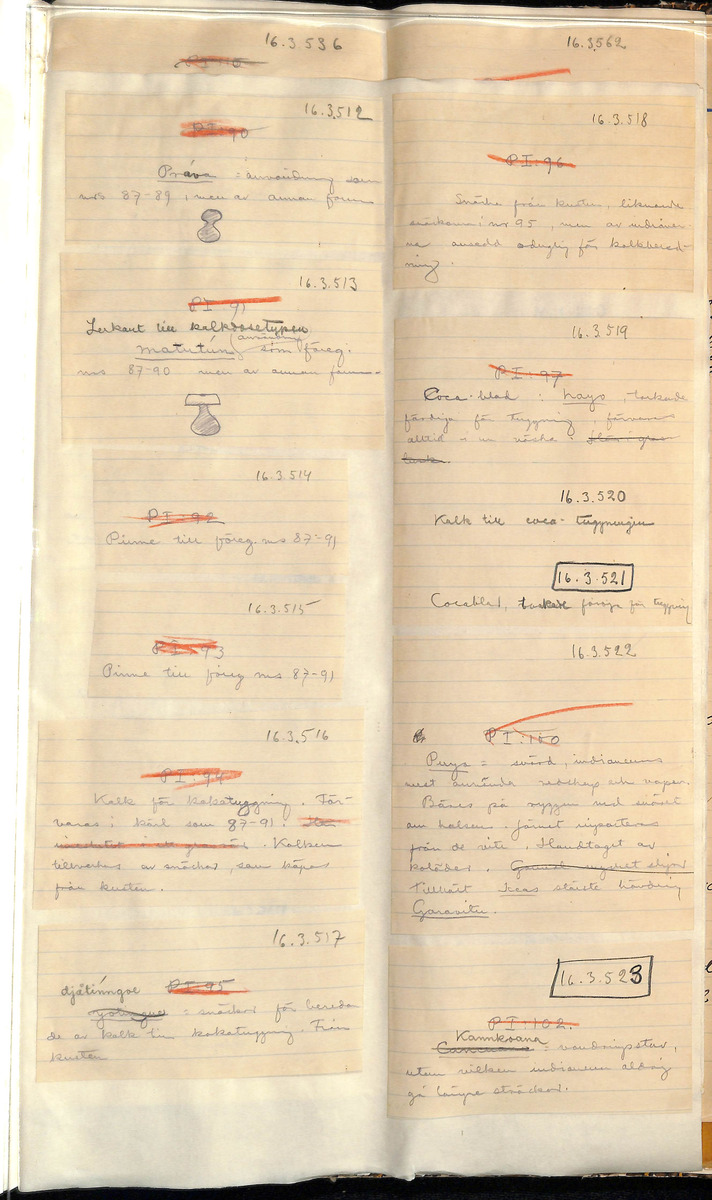 16.3.536
16.3.512
PI:90
Práva = användning som
nrs 87-89, men av annan form
16.3.513
PI:91
Lerkaut till kalkdosetypen
matutún (användning som föreg.
nrs 87-90 men av annan form
16.3.514
PI:92
Pinne till föreg. nrs 87-91
16.3.515
PI:93
Pinne till föreg nrs 87-91
16.3.516
PI:94
Kalk för kokatuggning. För-
varas i kärl som 87-91.
Kalken
tillverkas av snäckor, som köpas
från kusten.
16.3.517
djátinngoe PI:95
= snäckor för bereda
de av kalk till kokatuggning. Från
kusten
16.3.562
16.3.518
PI:96
Snäcka från kusten, liknande
snäckorna i nr 95, men av indianer-
na ansedd oduglig för kalkbered-
ning.
16.3.519
PI:97
Coca-blad : hayo, torkade
färdiga för tuggning, förvaras
alltid i en väska.
16.3.520
Kalk till coca-tuggningen
16.3.521
Cocablad, torkade färdiga för tuggning
16.3.522
PI:100
Puya = svärd, indianernas
mest använda redskap och vapen.
Bäres på ryggen med snöret
om halsen. Järnet importeras
från de vita. Handtaget av
koläder.
Tillhört Iccas största hövding
Garavitu.
16.3.523
PI:102
Kannkoana
= vandringsstav,
utan vilken indianen aldrig
gå längre sträckor.